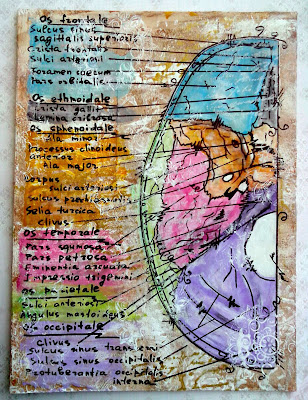 Os frontale
Sulcus sinus
sagittalis superioris
Crista frontalis
Sulci arteriosi
Foramen caecum
Pars orbitalis
Os ethmoidale
Crista galli
Lamina cribrosa
Os sphenoidale
Ala minor
Processus clinoideus
anterior
Ala major
Corpus
sulci arteriosi
Sulcus prechiasmatis
Sella turcica
clivus
Os temporale
Pars squmosa
Pars petrosa
Eminentia arcuata
Impressio trigemini
Os parietale
Sulci arteriosi
Angulus mastoideus
Os occipitale
Clivus
Sulcus sinus
Sulcus sinus occipitalis
Protuberantia occipitalis
interna